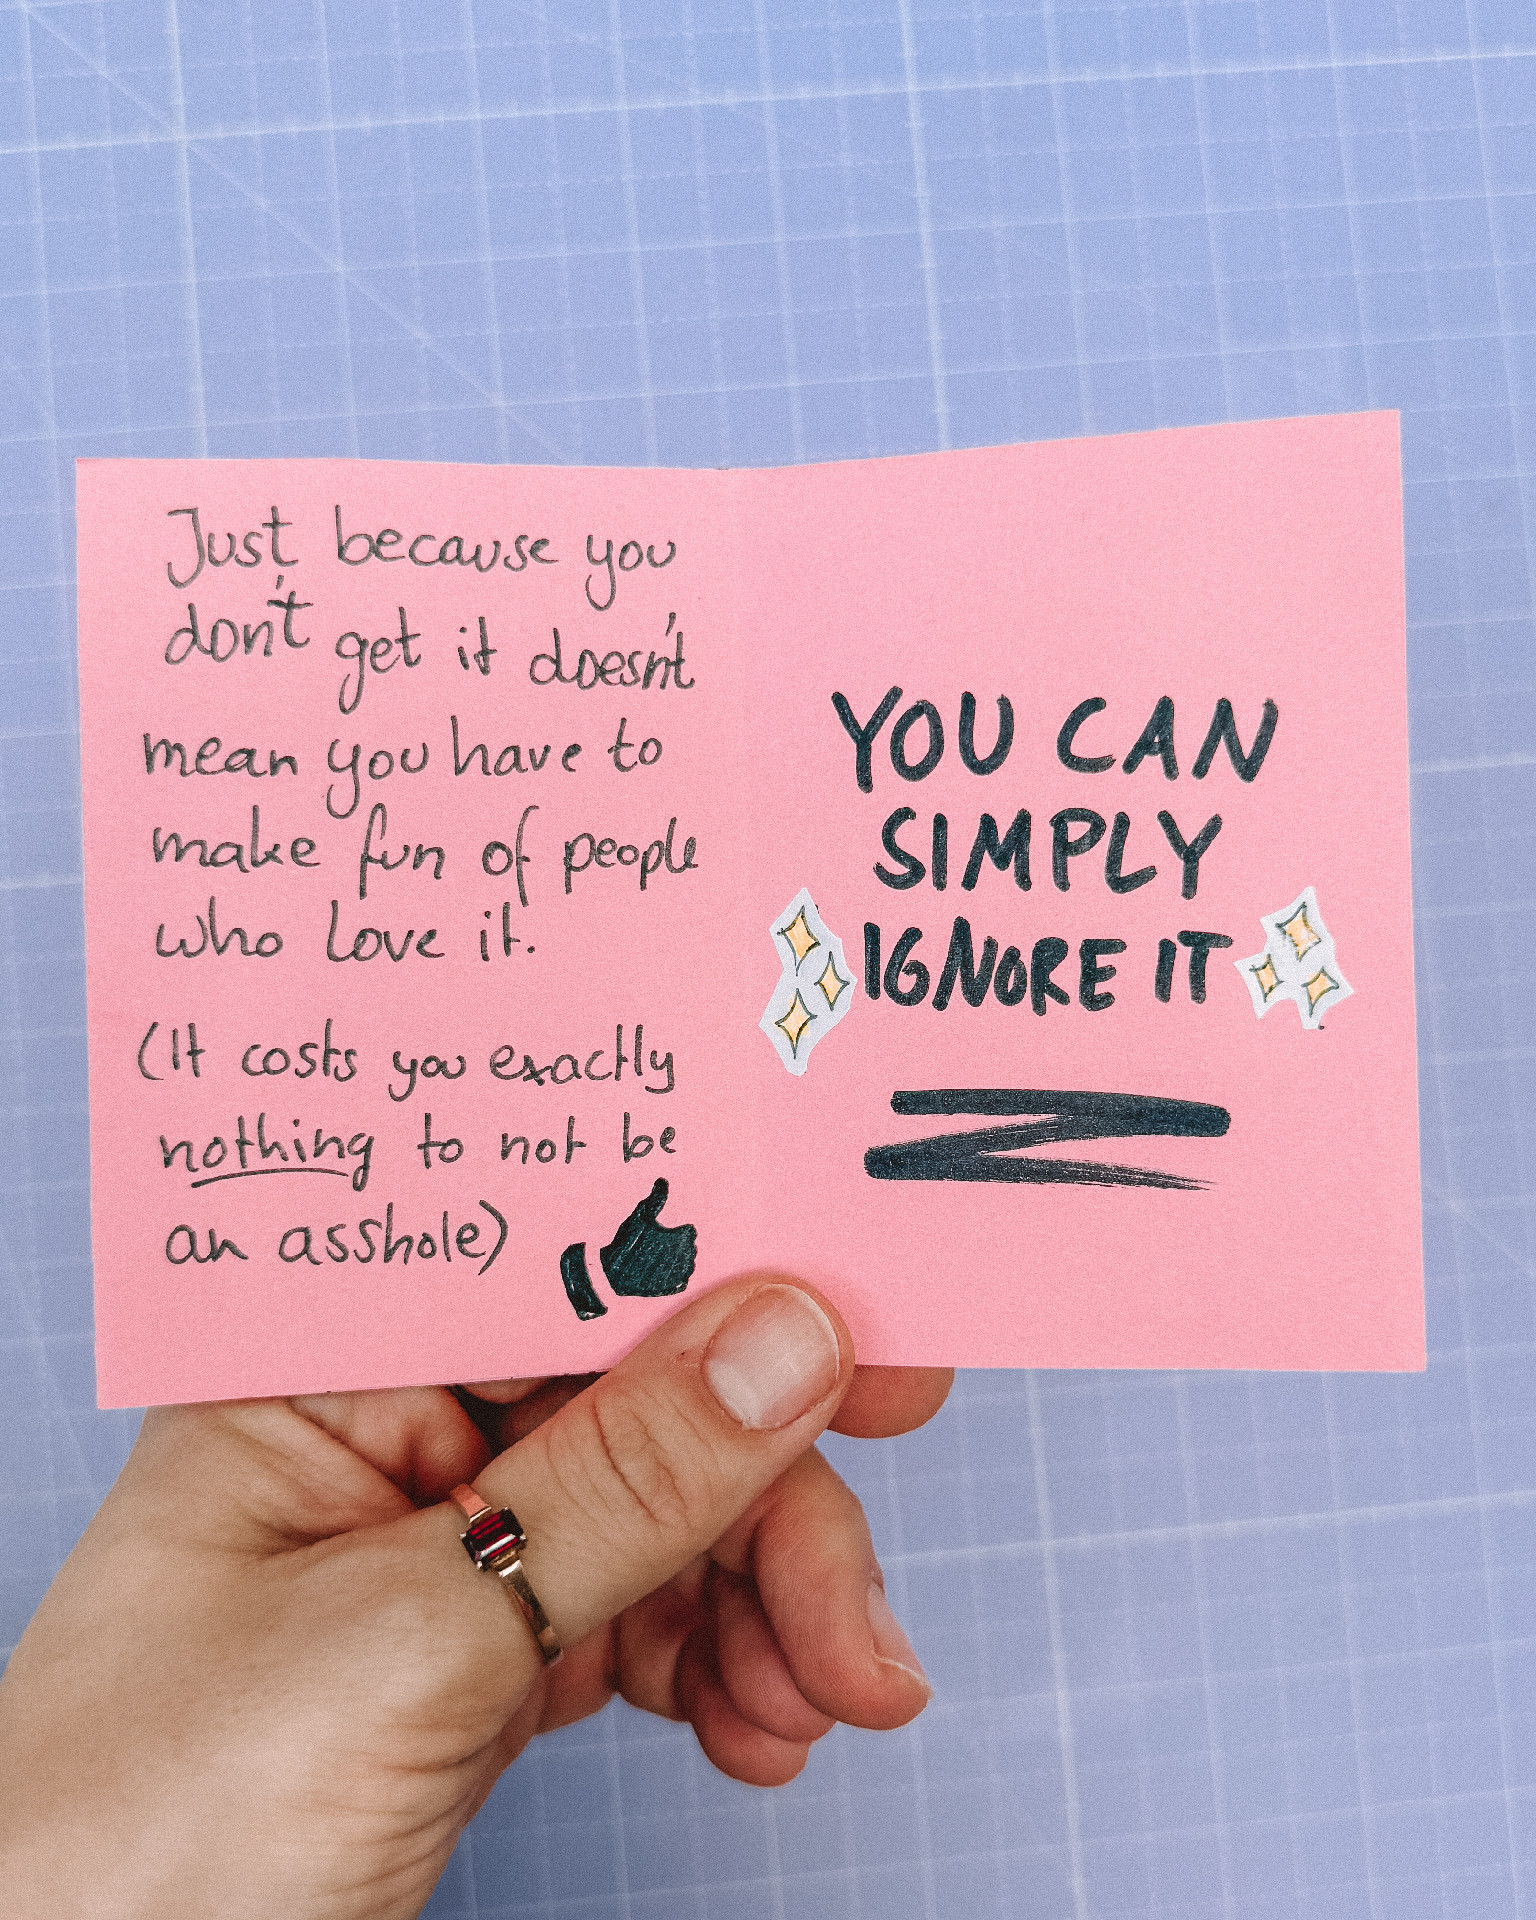 Just because you
don't get it doesn't
mean you have to
make fun of people
who love it.
(It costs you exactly
nothing to not be
an asshole)
YOU CAN
SIMPLY
IGNORE IT